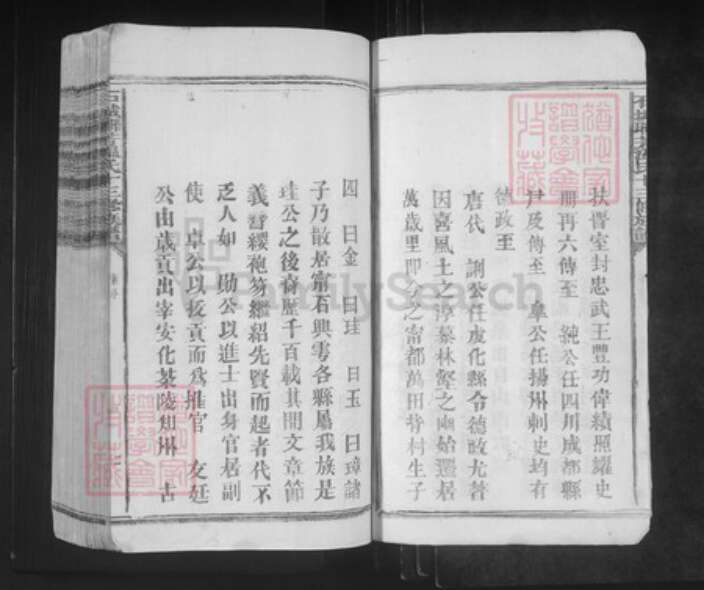 扶晋室封忠武王豐功偉績照耀史
冊再六傳至 純公任四川成都縣
尹及傳至 阜公任揚州刺史均有
德政至
唐代 訓公任虔化縣令德政尤著
因喜風土之淳慕林壑之幽始遷居
萬歲里即今之甯都萬田背村生子
四 曰金 曰珪 曰玉 曰璋諸
子乃散居甯石興雩各縣屬我族是
珪公之後裔歷千百載其間文章節
義簪纓袍笏繼紹先賢而起者代不
乏人如 勛公以進士出身官居副
使 卓公以拔貢而為推官 友廷
公由歲貢出宰安化茶陵知州 古
FamilySearch